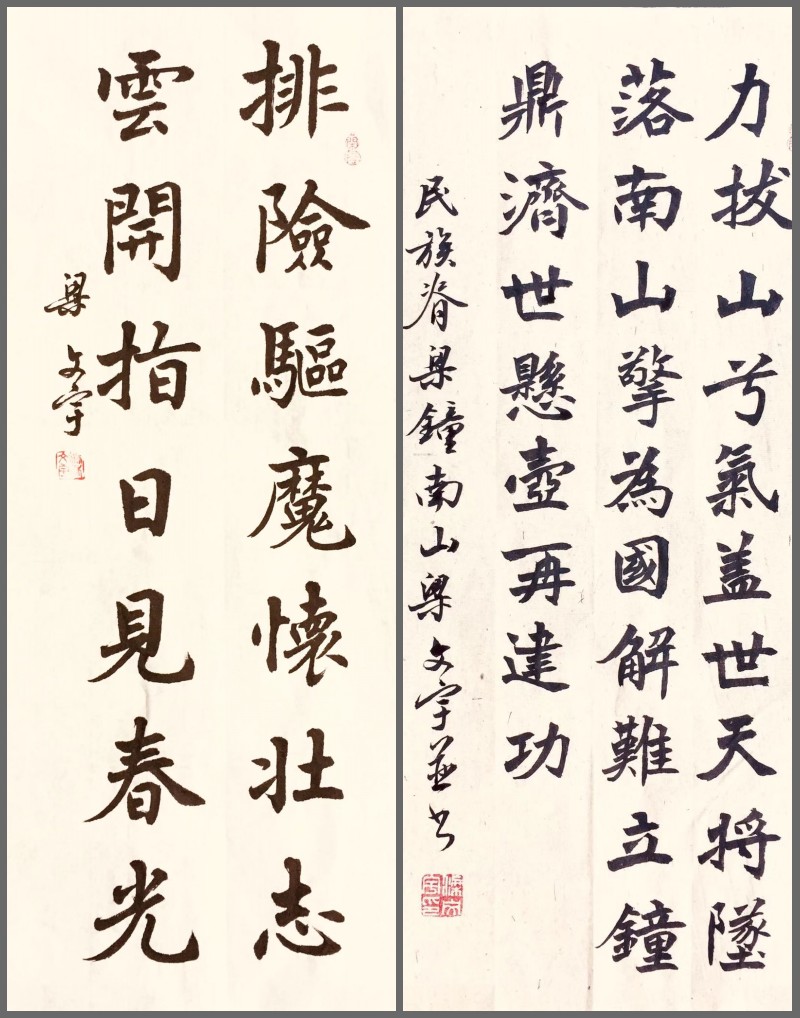 排險驅魔懷壯志
雲開指日見春光
梁文宇
力拔山兮氣蓋世天將墜
落南山擎為國解難立鐘
鼎濟世懸壺再建功
民族脊梁鐘南山梁文宇並書